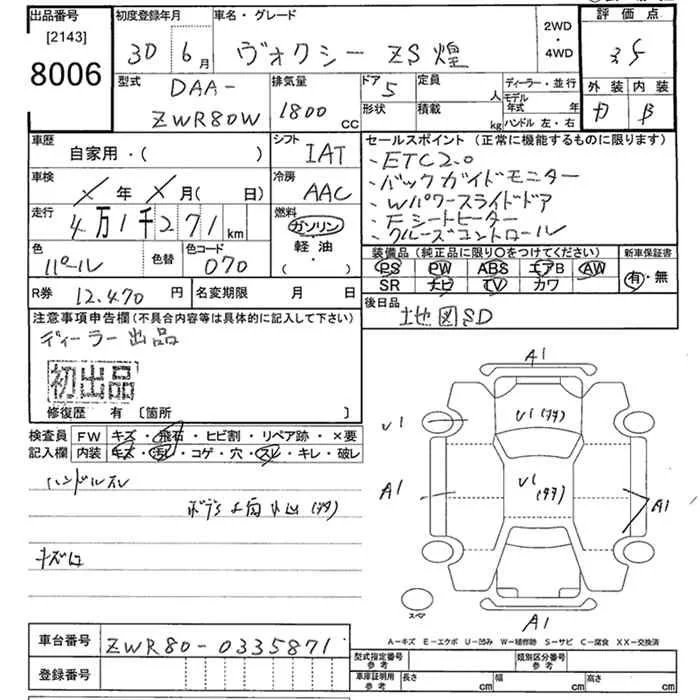 出品番号 初度登録年月 車名・グレード 2WD・4WD 評価点
[2143]
8006 30年6月 ヴォクシー ZS煌 3.5
型式 排気量 ドア 定員 ディーラー・並行 外装 内装
DAA-ZWR80W 1800cc 5 人 モデル年式 年 B
形状 積載 kg ハンドル 左・右
車歴 自家用・( ) シフト IAT
セールスポイント(正常に機能するものに限ります)
、ETC2.0
、バックガイドモニター
、Wパワースライドドア
、Fシートヒーター
、クルーズコントロール
車検 × 年 × 月( 日) 冷房 AAC
走行 4万1千271km 燃料 ガソリン 軽油 ( ・ )
色 パール 色替 色コード 070
装備品(純正品に限り○をつけてください) 新車保証書
PS PW ABS エアB AW 有・無
SR ナビ TV カワ
R券 12.470円 名変期限 月 日
後日品 地図SD
注意事項申告欄(不具合内容等は具体的に記入して下さい)
ディーラー出品
初出品
修復歴 有〔箇所 〕
検査員記入欄 FW キズ・飛石・ヒビ割・リペア跡・×要
内装 キズ・汚れ・コゲ・穴・スレ・キレ・破レ
ハンドルスレ
キズ
A1
U1
U1
A1
U1
A1
A1
スペア
A-キズ E-エクボ U-凹み W-補修跡 S-サビ C-腐食 XX-交換済
車台番号 ZWR80-0335871
登録番号
型式指定番号 参考 類別区分番号 参考
車庫証明用 参考 長さ cm 幅 cm 高さ cm